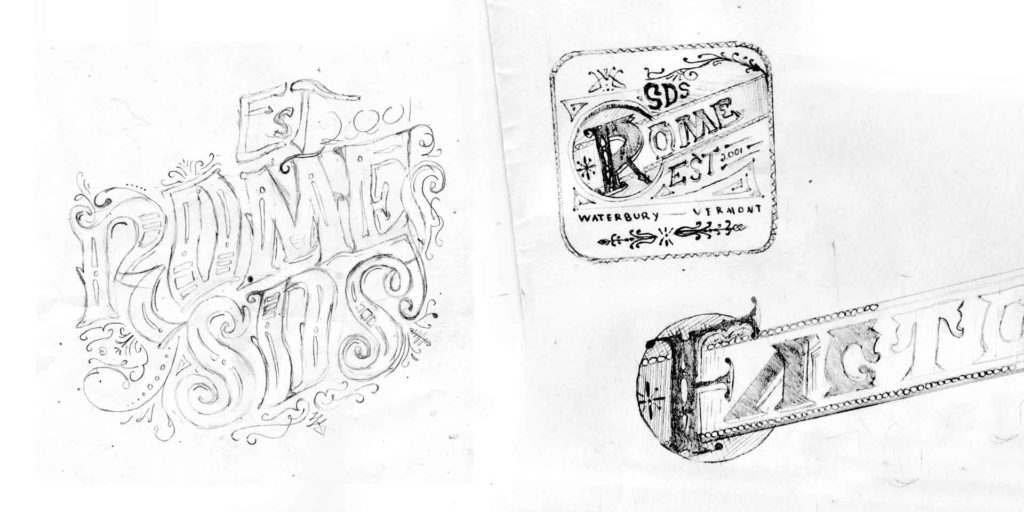 EST 2001
ROME
SDS
SDS
ROME
EST 2001
WATERBURY — VERMONT
FACTO